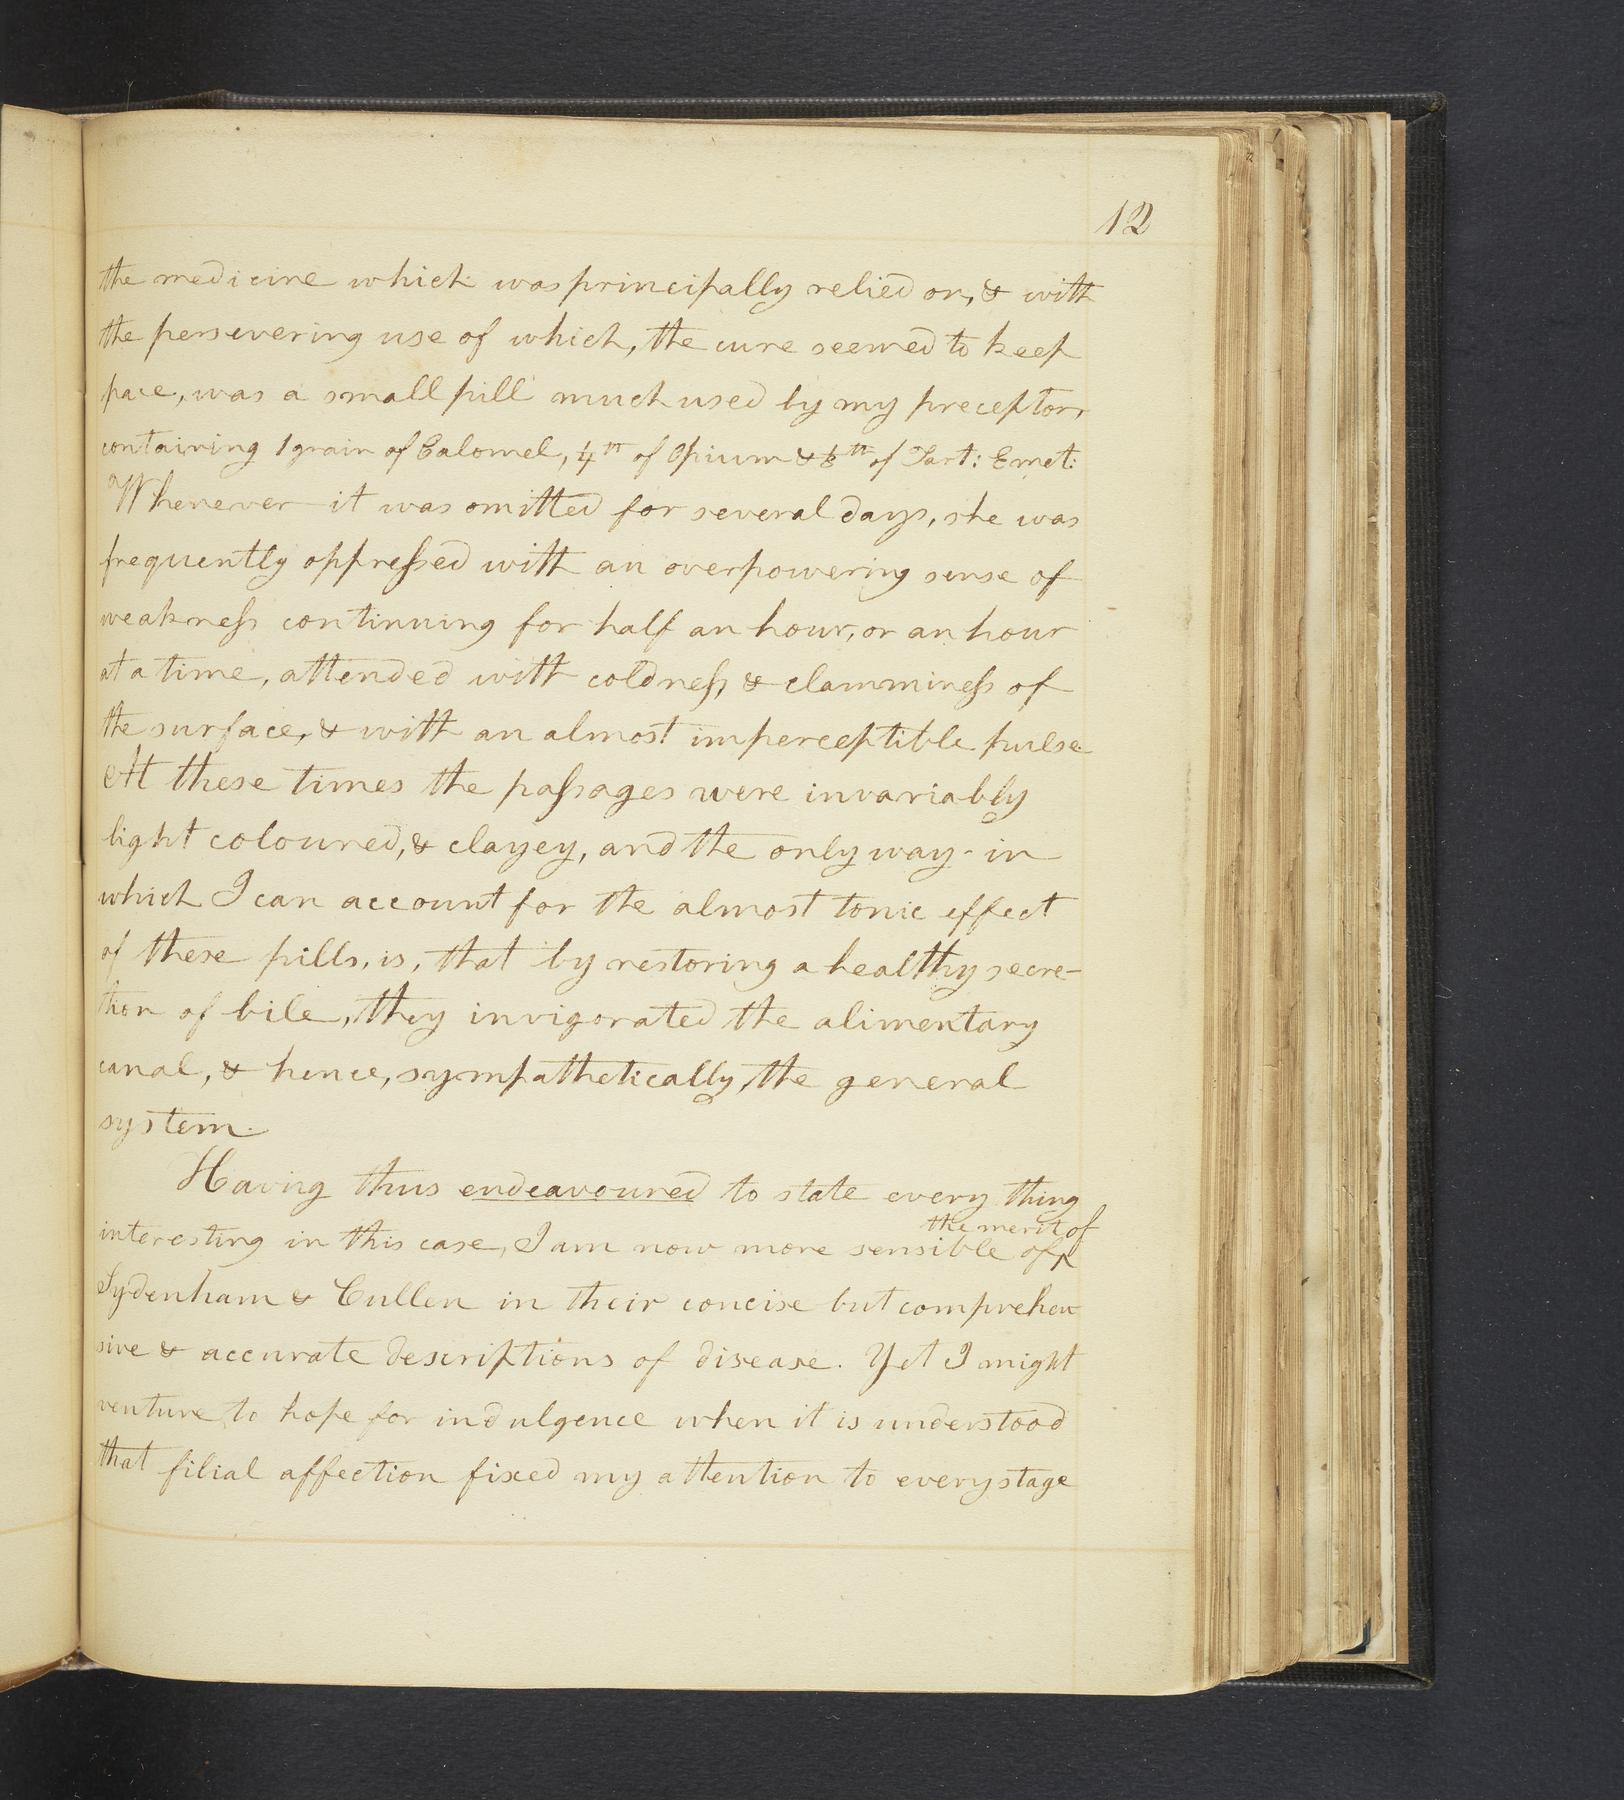 12
the medicine which was principally relied on, & with
the persevering use of which, the cure seemed to keep
pace, was a small pill much used by my preceptor,
containing 1 grain of Calomel, 4th of Opium & 8th of Tart: Emet:
Whenever it was omitted for several days, she was
frequently oppressed with an overpowering sense of
weakness continuing for half an hour, or an hour
at a time, attended with coldness, & clamminess of
the surface, & with an almost imperceptible pulse.
At these times the passages were invariably
light coloured, & clayey, and the only way in
which I can account for the almost tonic effect
of these pills, is, that by restoring a healthy secre-
tion of bile, they invigorated the alimentary
canal, & hence, sympathetically, the general
system.
Having thus endeavoured to state every thing
the merit of
interesting in this case, I am now more sensible of
Sydenham & Cullen in their concise but comprehen
sive & accurate descriptions of disease. Yet I might
venture to hope for indulgence when it is understood
that filial affection fixed my attention to every stage